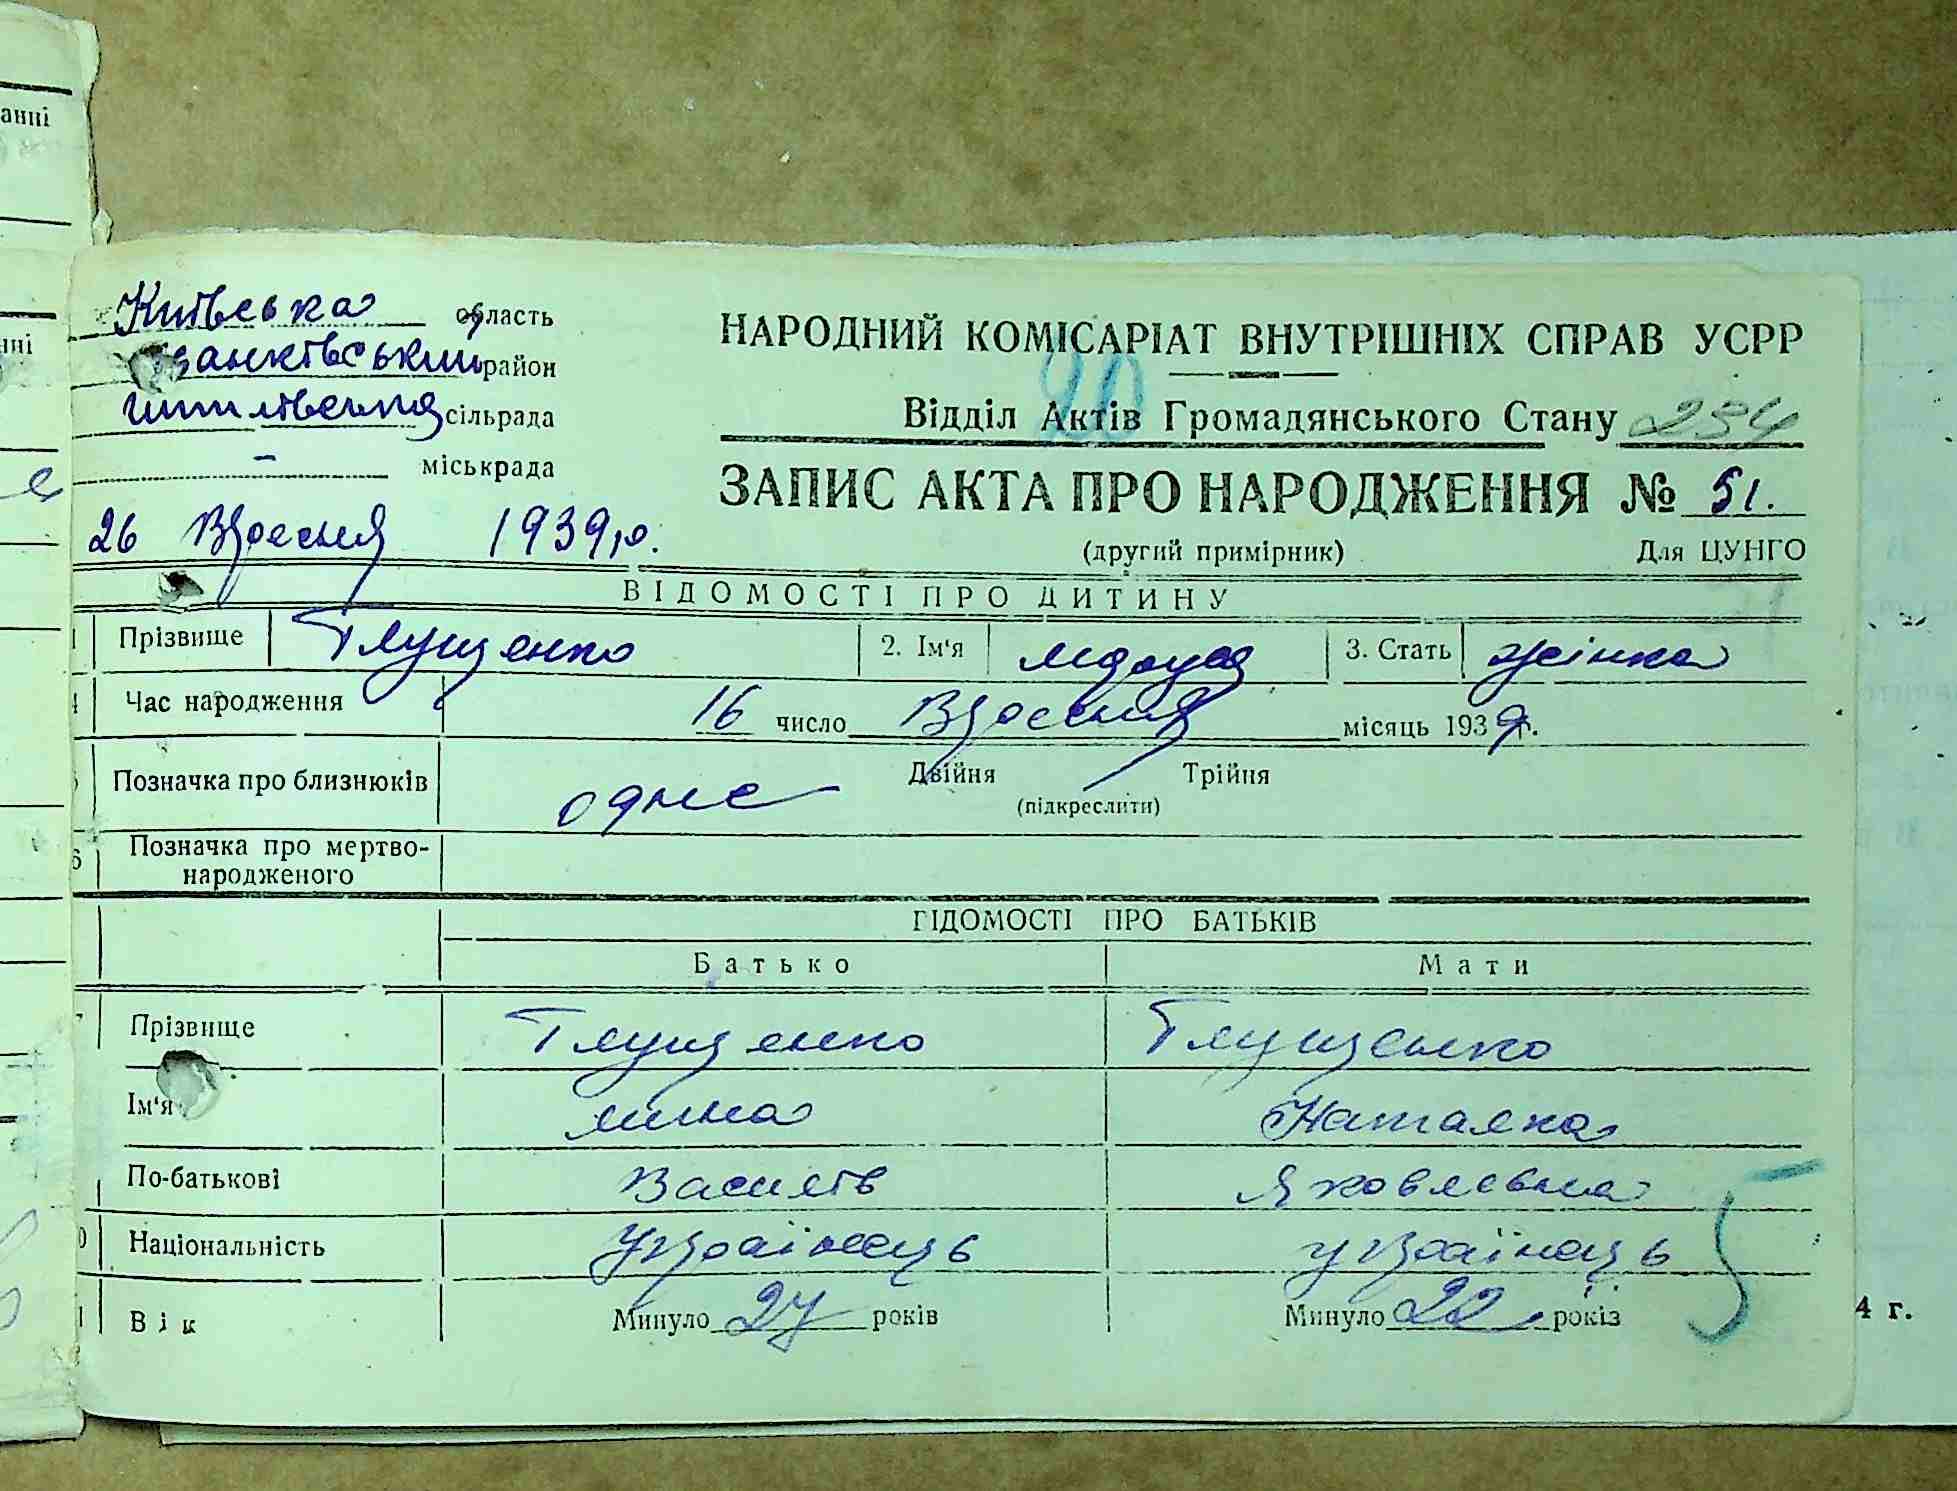 анні
нні
Київська область
Іванківський район
сільрада
- міськрада
26 Вресня 1939 р.
НАРОДНИЙ КОМІСАРІАТ ВНУТРІШНІХ СПРАВ УСРР
20
Відділ Актів Громадянського Стану 254
ЗАПИС АКТА ПРО НАРОДЖЕННЯ № 51.
(другий примірник) Для ЦУНГО
ВІДОМОСТІ ПРО ДИТИНУ
Прізвище Глущенко 2. Ім'я Маруся 3. Стать жінка
Час народження 16 число Вресня місяць 1939 р.
Позначка про близнюків одне Двійня Трійня
(підкреслити)
6 Позначка про мертво-
народженого
ГІДОМОСТІ ПРО БАТЬКІВ
Батько Мати
7 Прізвище Глущенко Глущенко
Ім'я Мина Наталка
По-батькові Василів Яковлевна
Національність Українець українець
Вік Минуло 27 років Минуло 22 років
5
4 г.